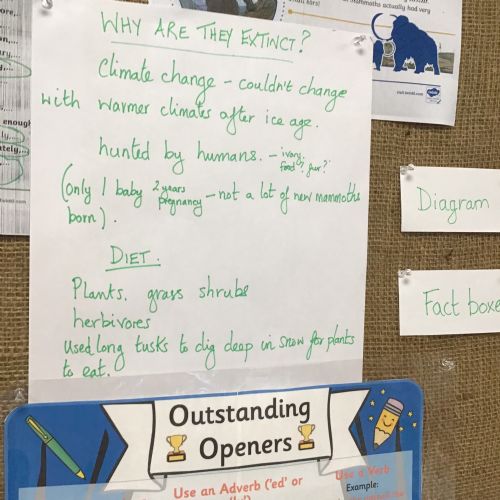 WHY ARE THEY EXTINCT?
Climate change - couldn't change
with warmer climates after ice age.
hunted by humans. - ivory, food? fur?
(only 1 baby 2 years pregnancy - not a lot of new mammoths
born).
DIET.
Plants, grass shrubs
herbivores
used long tusks to dig deep in snow for plants
to eat.
mammoths actually had very
visit twinkl.com
Diagram
Fact boxe
Outstanding
Openers
Use an Adverb ('ed' or
Use a Verb
Example: